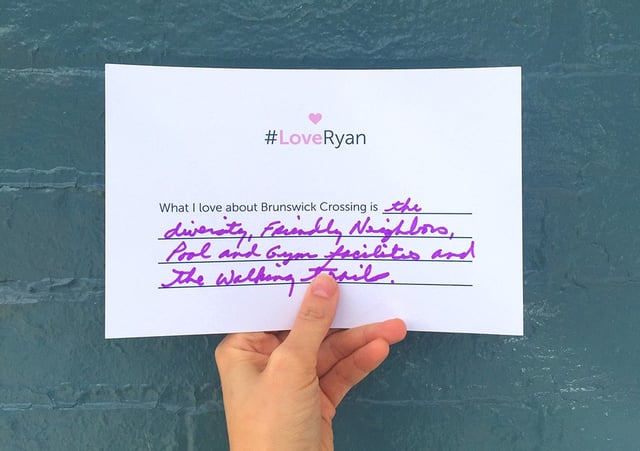 #LoveRyan
What I love about Brunswick Crossing is the
diversity, Friendly Neighbors,
Pool and Gym facilities and
the walking trails.